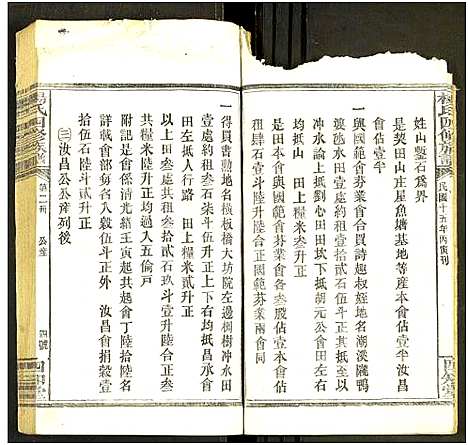 楊氏四修族譜
民國十五年丙寅刊
四知堂
姓山鑿石爲界
是契田山庄屋魚塘基地等產本會佔一半汝昌
會佔壹半
一與國範會芬業會合買詩趣叔姪地名湖溪隴鴨
婆氹水田壹處約租壹拾貳石伍斗升正其抵至以
冲水論田以圳田坎下抵朝元公會田左右
均抵山 田上糧米叁升正
是田本會與國範會芬業會各叁股佔壹本會
租肆石壹斗陸升合正國範芬業兩會同
一得買書瀜地名橫板橋大坊院左邊桐樹冲水田
壹處約租叁石柒斗伍升正上下右均抵昌承會
田左抵人行路 田上糧米貳升正
以上田叁處共租叁拾貳石玖斗壹升陸合正叁
共糧米陸升正均過入五倫戶
附記是會係清光緒壬寅起會丁陸拾陸名
詳載會部每名入穀伍斗正外 汝昌會捐穀壹
拾伍石陸斗貳升正
㊂汝昌公公產列後
楊氏四修族譜
第二冊
公產
四號
四知堂